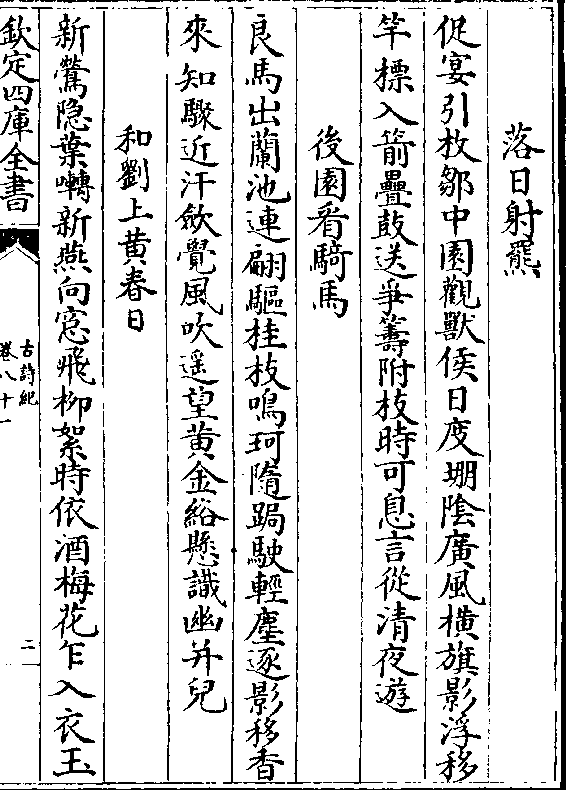 落日射羆
促宴引枚鄒中園觀獸侯日度堋陰廣風横旗影浮移
竿標入箭疊鼓送爭籌附枝時可息言從清夜遊
後園看騎馬
良馬出蘭池連翩驅桂枝鳴珂隨跼駛輕塵逐影移香
來知驟近汗斂覺風吹遥望黄金絡懸識幽并兒
和劉上黄春日
新鶯隐葉囀新燕向窓飛栁絮時依酒梅花乍入衣玉
欽定四庫全書
古詩紀
卷八十一
二